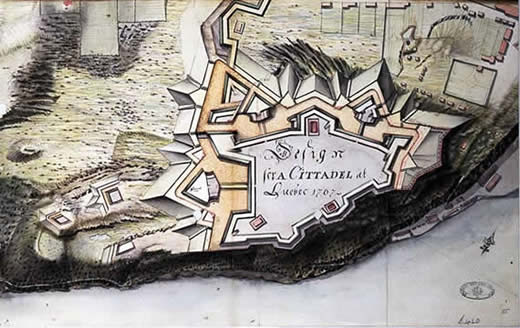 Design
for A CITTADEL at
Quebec 1767